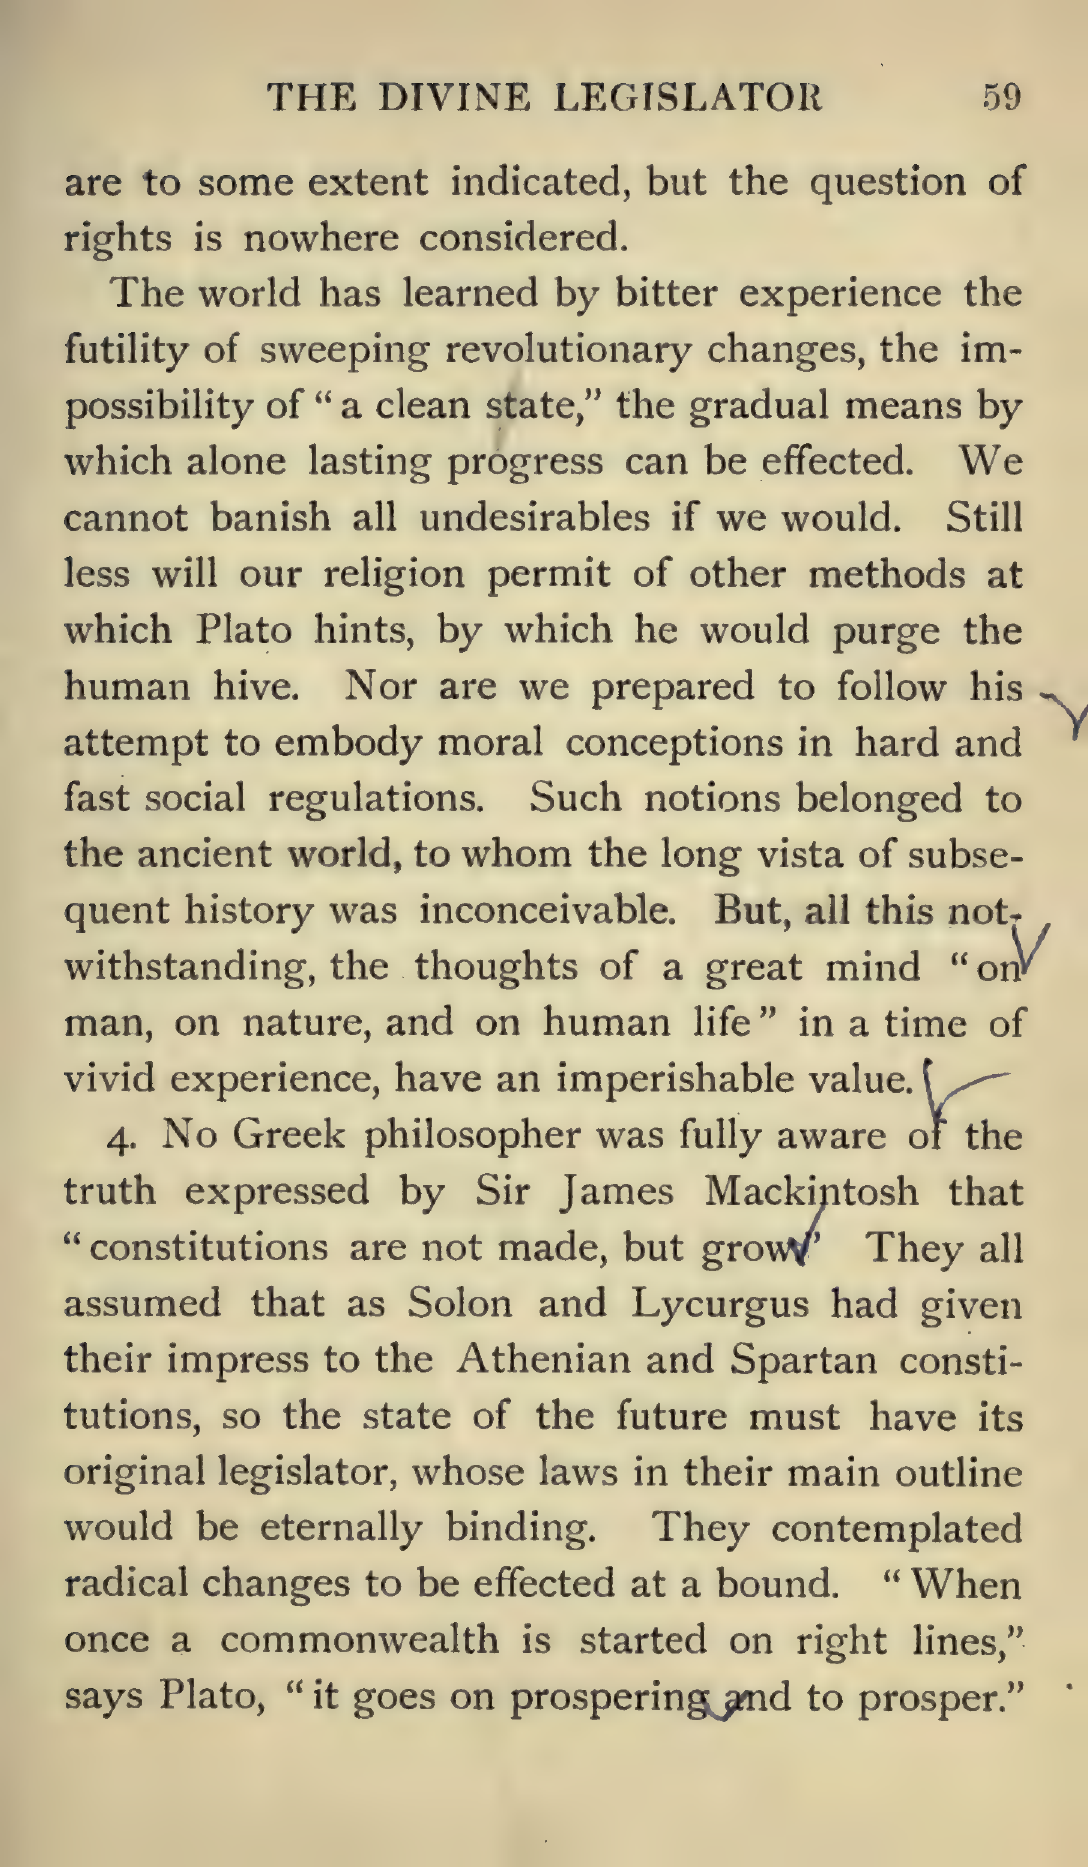 THE DIVINE LEGISLATOR 59
are to some extent indicated, but the question of
rights is nowhere considered.
The world has learned by bitter experience the
futility of sweeping revolutionary changes, the im-
possibility of “a clean state,” the gradual means by
which alone lasting progress can be effected. We
cannot banish all undesirables if we would. Still
less will our religion permit of other methods at
which Plato hints, by which he would purge the
human hive. Nor are we prepared to follow his
attempt to embody moral conceptions in hard and
fast social regulations. Such notions belonged to
the ancient world, to whom the long vista of subse-
quent history was inconceivable. But, all this not-
withstanding, the thoughts of a great mind “on
man, on nature, and on human life” in a time of
vivid experience, have an imperishable value.
4. No Greek philosopher was fully aware of the
truth expressed by Sir James Mackintosh that
“constitutions are not made, but grow” They all
assumed that as Solon and Lycurgus had given
their impress to the Athenian and Spartan consti-
tutions, so the state of the future must have its
original legislator, whose laws in their main outline
would be eternally binding. They contemplated
radical changes to be effected at a bound. “When
once a commonwealth is started on right lines,”
says Plato, “it goes on prospering and to prosper.”